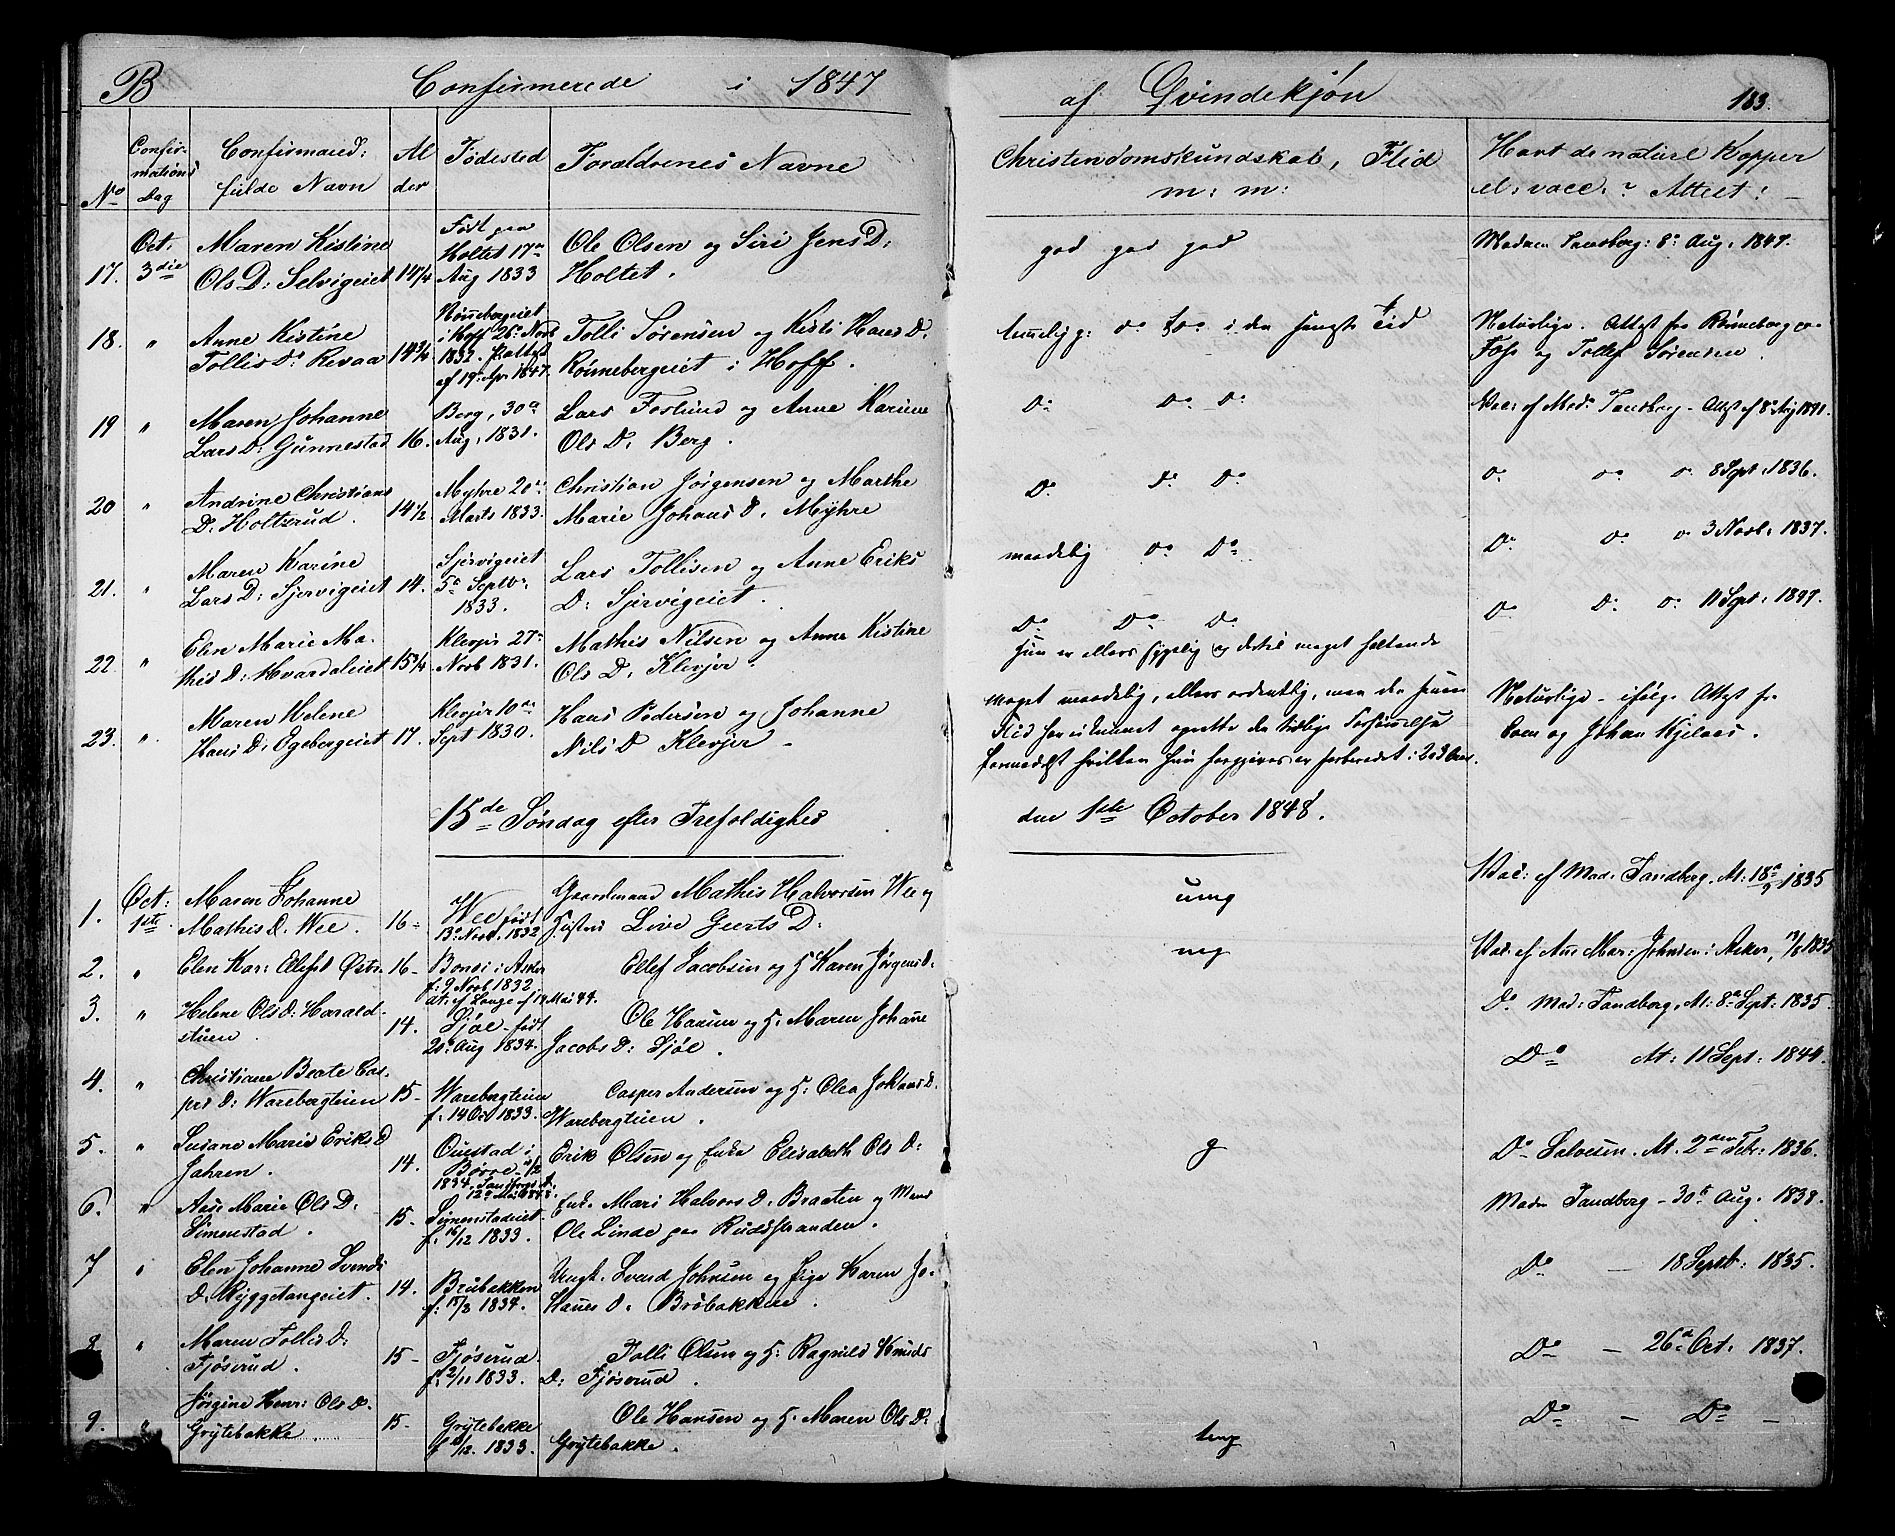 B Confirmerede i 1847
af Qvindekjøn 183.
No
Confir-
mations
Dag
Confirmand:
fulde Navn
Al
der
Fødested
Forældrenes Navne
Christendomskundskab, Flid
m: m:
Havt de naturl Kopper
el: vacc: ? Attest: –
17. Oct: 3die
Maren Kistine
Ols D: Selvigeiet 14 1/4
Født paa
Holtet 17de
Aug 1833
Ole Olsen og Siri Jens D:
Holtet.
god god god
Madam Tandberg: 8de Aug. 1847.
18. "
Anne Kistine
Tollis D: Revaa 14 3/4
Rønnebergeiet
i Hoff 26de Novb
1832.
af 19de Apr. 1847.
Tolli Sørensen og Kisti Hans D.
Rønnebergeiet i Hoff.
temelig g: do do i den sengste Tid
Naturlige. Attest fra Rønneberg
Foss og Tollef Sørensen.
19 "
Maren Johanne
Lars D: Gunnestad 16.
Berg, 30te
Aug, 1831.
Lars Foslund og Anne Karine
Ols D. Berg.
Do Do Do
Vac: af Mad: Tandberg – Attest af 8de
20 "
Andrine Christians
D: Holtzrud. 14 1/2
Myhre 20de
Marts 1833.
Christian Jørgensen og Marthe
Marie Johans D. Myhre
Do Do Do
Do Do Do 8 Sept: 1836.
21. "
Maren Karine
Lars D: Sjervigeiet 14.
Sjervigeiet
5te Septbr:
1833.
Lars Tollisen og Anne Eriks
D: Sjervigeiet.
maadelig Do Do
Do Do Do 3 Novb: 1837.
22. "
Elen Marie Ma-
this D: Hvardaleiet 15 3/4
Klevjer 27de
Novb 1831.
Mathis Nilsen og Anne Kistine
Ols D. Klevjer.
Do Do Do
Hun er ellers sygelig og dertil meget haltende
Do Do Do 11 Sept: 1847.
23. "
Maren Helene
Hans D: Egebergeiet 17.
Klevjer 10de
Sept 1830.
Hans Pedersen og Johanne
Nils D Klevjer –
Meget maadelig, ellers ordentlig, men den
Flid har ei kunnet oprette den tidlige Forsømmelse
formedelst hvilken hun forgjæves er forberedet i 2 a 3 Aar.
Naturlige – ifølge Attest fra
Even og Johan Kjelaas.
15de Søndag efter Trefoldighed
den 1ste October 1848.
1. Oct: 1ste
Maren Johanne
Mathis D. Wee. 16-
Wee født
13de Novb. 1832
Gaardmand Mathis Halvorsen Wee og
Hustru Live Geerts D:
umg
Vac: af Mad: Tandberg. At: 18de/9 1835
2. "
Elen Kar: Ellefsd Østr. 16-
Bondi i Asker
f: 9 Novb 1832.
at: af Lange af 19 Mai 44.
Ellef Jacobsen og H Karen Jørgens D.
mg
Vac: af Ane Mar: Johnsen i Asker, 1835
3. "
Helene Ols D: Harald-
stuen. 14.
Sjøl – født
20de Aug 1834.
Ole Hansen og H. Maren Johane
Jacobs D: Sjøl.
Do Mad: Tandberg, At: 8de Sept: 1835.
4. "
Christiane Beate Cas-
pers D: Warebergteien 15-
Warebergteien
f. 14 Oct 1833.
Casper Andersen og H: Olea Johans D.
Warebergteien.
Do At: 11 Sept: 1844.
5. "
Susane Marie Eriks D
Jahren. 14.
Ouestad i
Borre
1834. Tandbergs At:
12te Mai 1848.
Erik Olsen og Enke Elisabeth Ols D:
g
Do Salvesen. At. 2den Febr: 1836.
6. "
Aase Marie Ols D.
Simenstad. 15.
Simenstadeiet
f: 16/12 1833.
Enke Mari Halvors D. Braaten og Mand
Ole Linde paa Rudsstranden.
Madm Tandberg – 30te Aug. 1838.
7 "
Elen Johanne Svends
D. Ryggetangeiet. 14.
Bråbakken
f: 17/3 1834.
Ungk. Svend Johnsen og Pige Karen Jo-
hanes D. Bråbakken.
Do – 18 Septb: 1835.
8 "
Maren Tollis D:
Fjøserud. 15-
Fjøserud.
f. 2/11 1833.
Tolli Olsen og H: Ragnild Knuds
D: Fjøserud.
Do – 26de Oct. 1837.
9. "
Jørgine Henr: Ols D.
Grytebakke. 15.
Grytebakke
f /12. 1833.
Ole Hansen og H. Maren Ols D:
Grytebakke.
tmg
Do – Do –